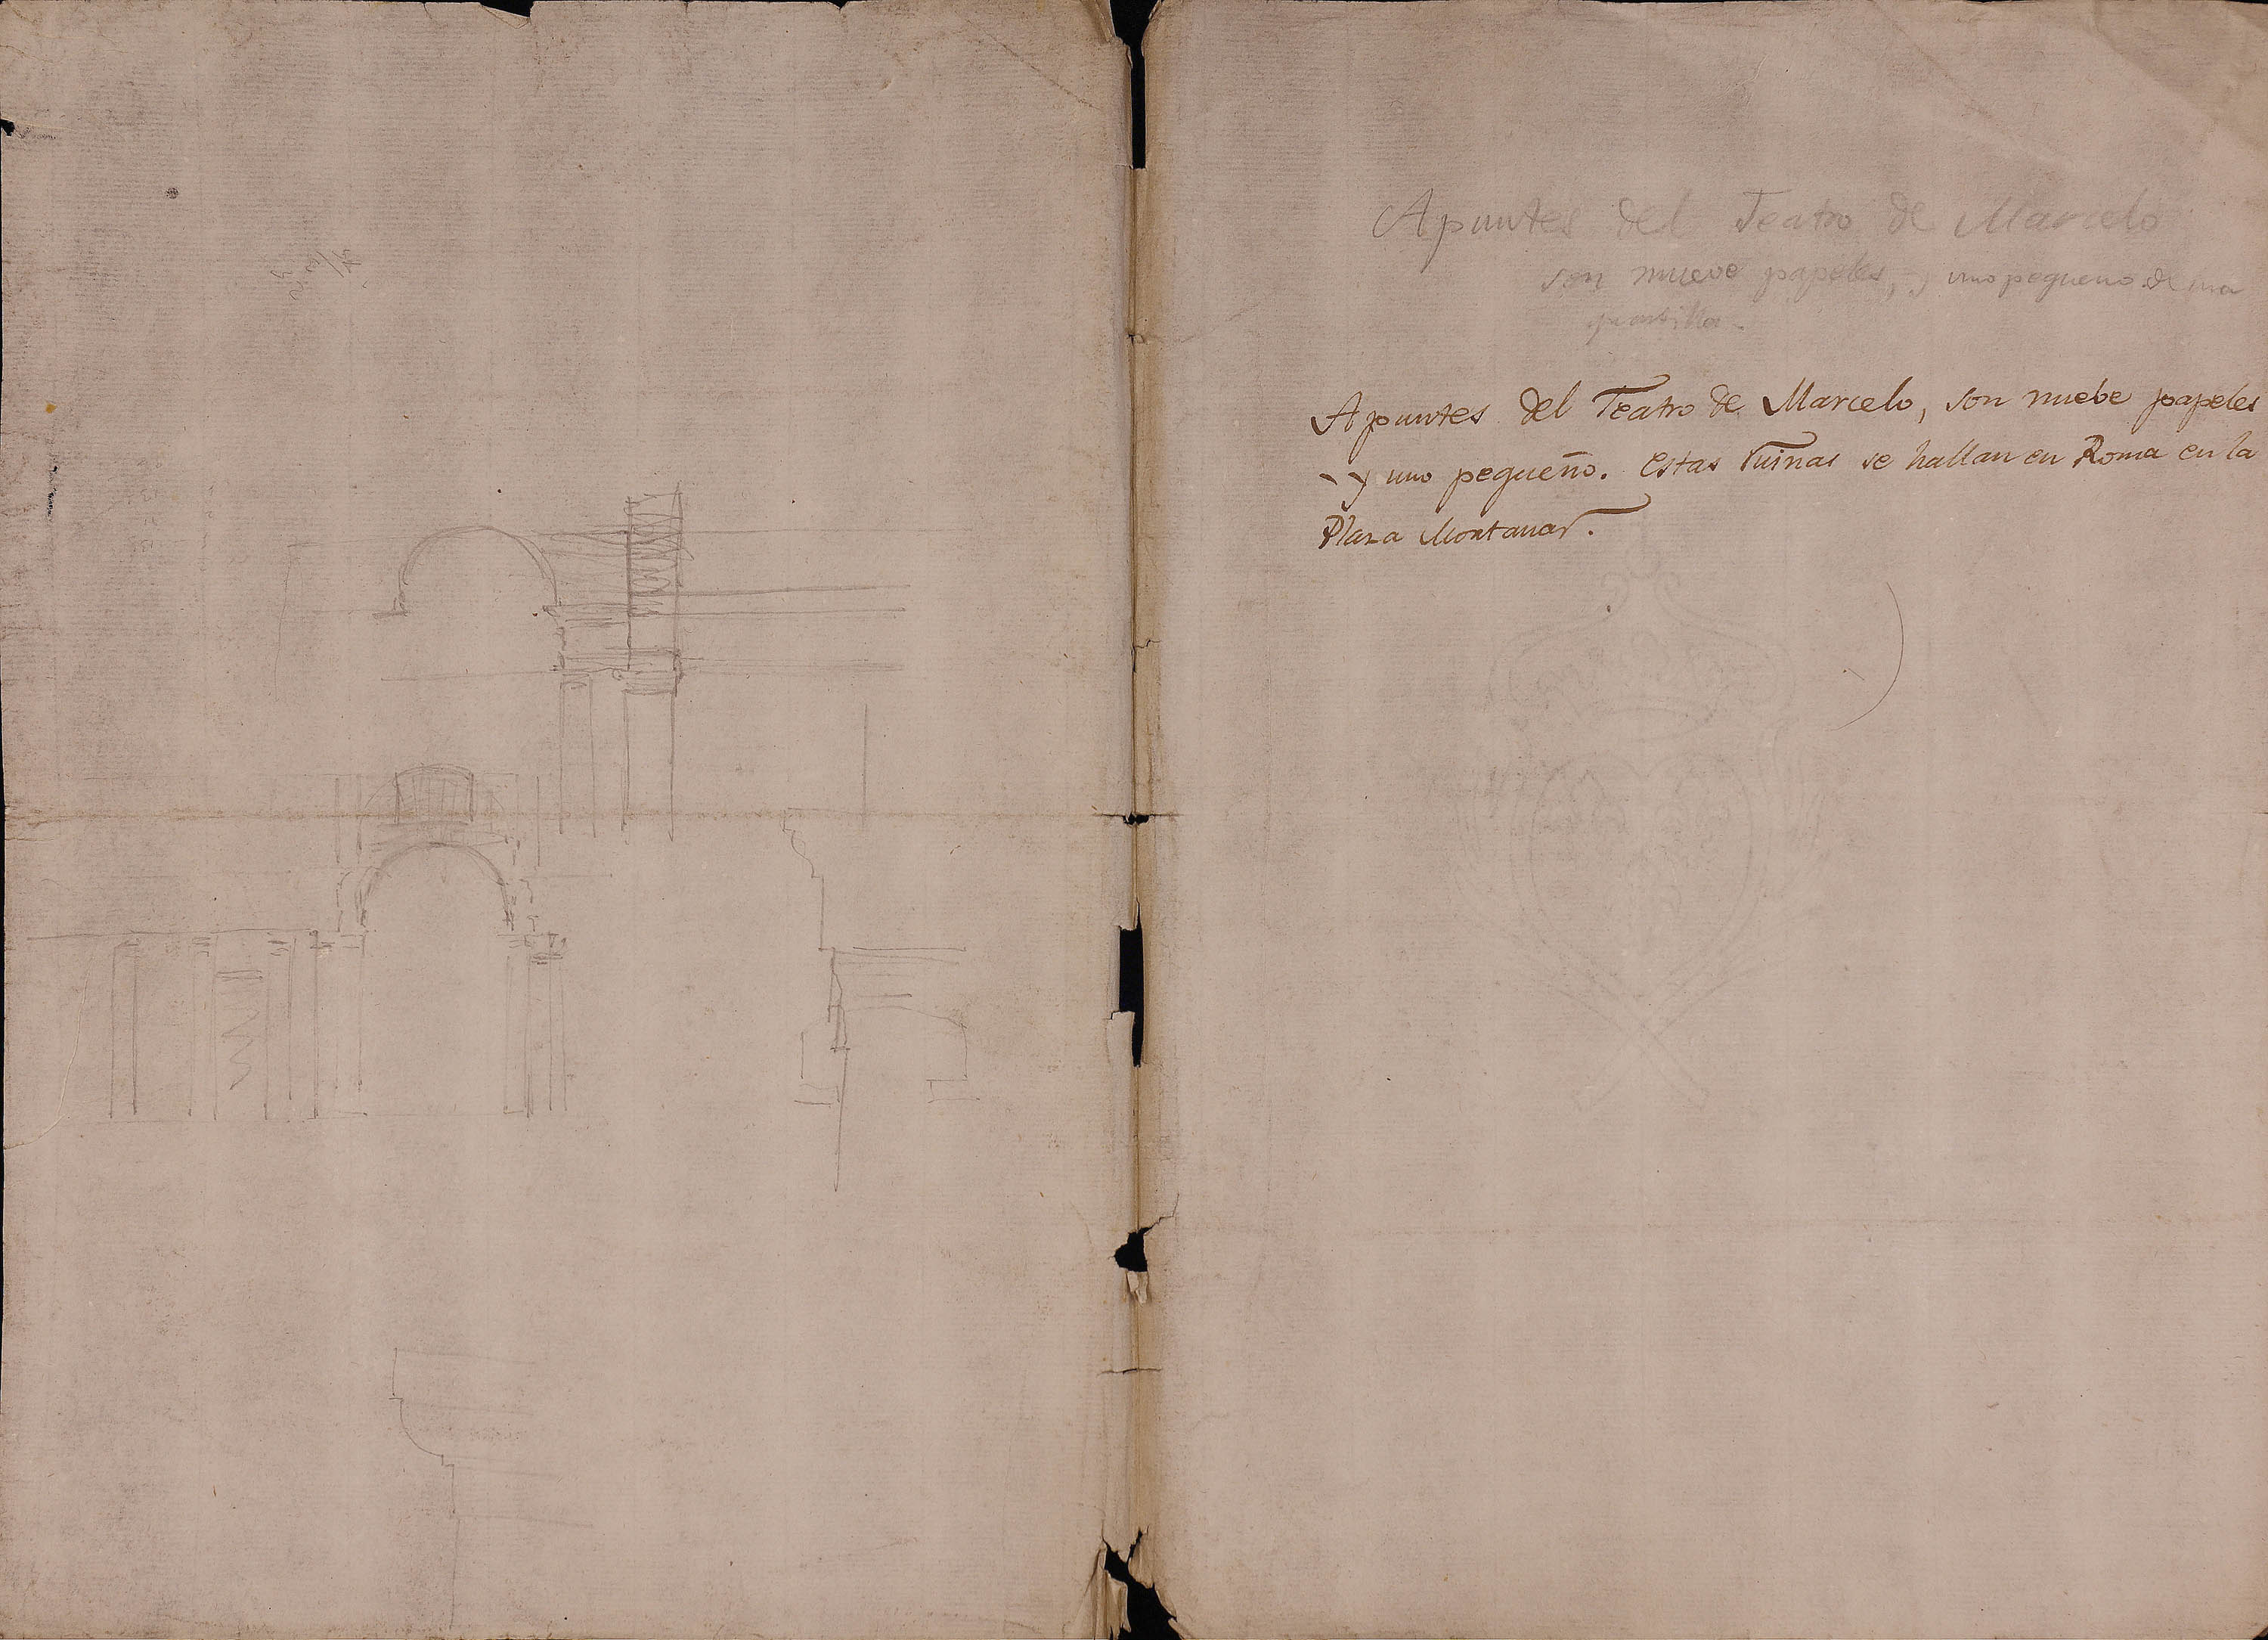 Apuntes del Teatro de Marcelo
son nueve papeles, y uno pequeno de una
Apuntes del Teatro de Marcelo, son nuebe papeles
y uno pequeño. Estas ruinas se hallan en Roma en la
Plaza Montanar.